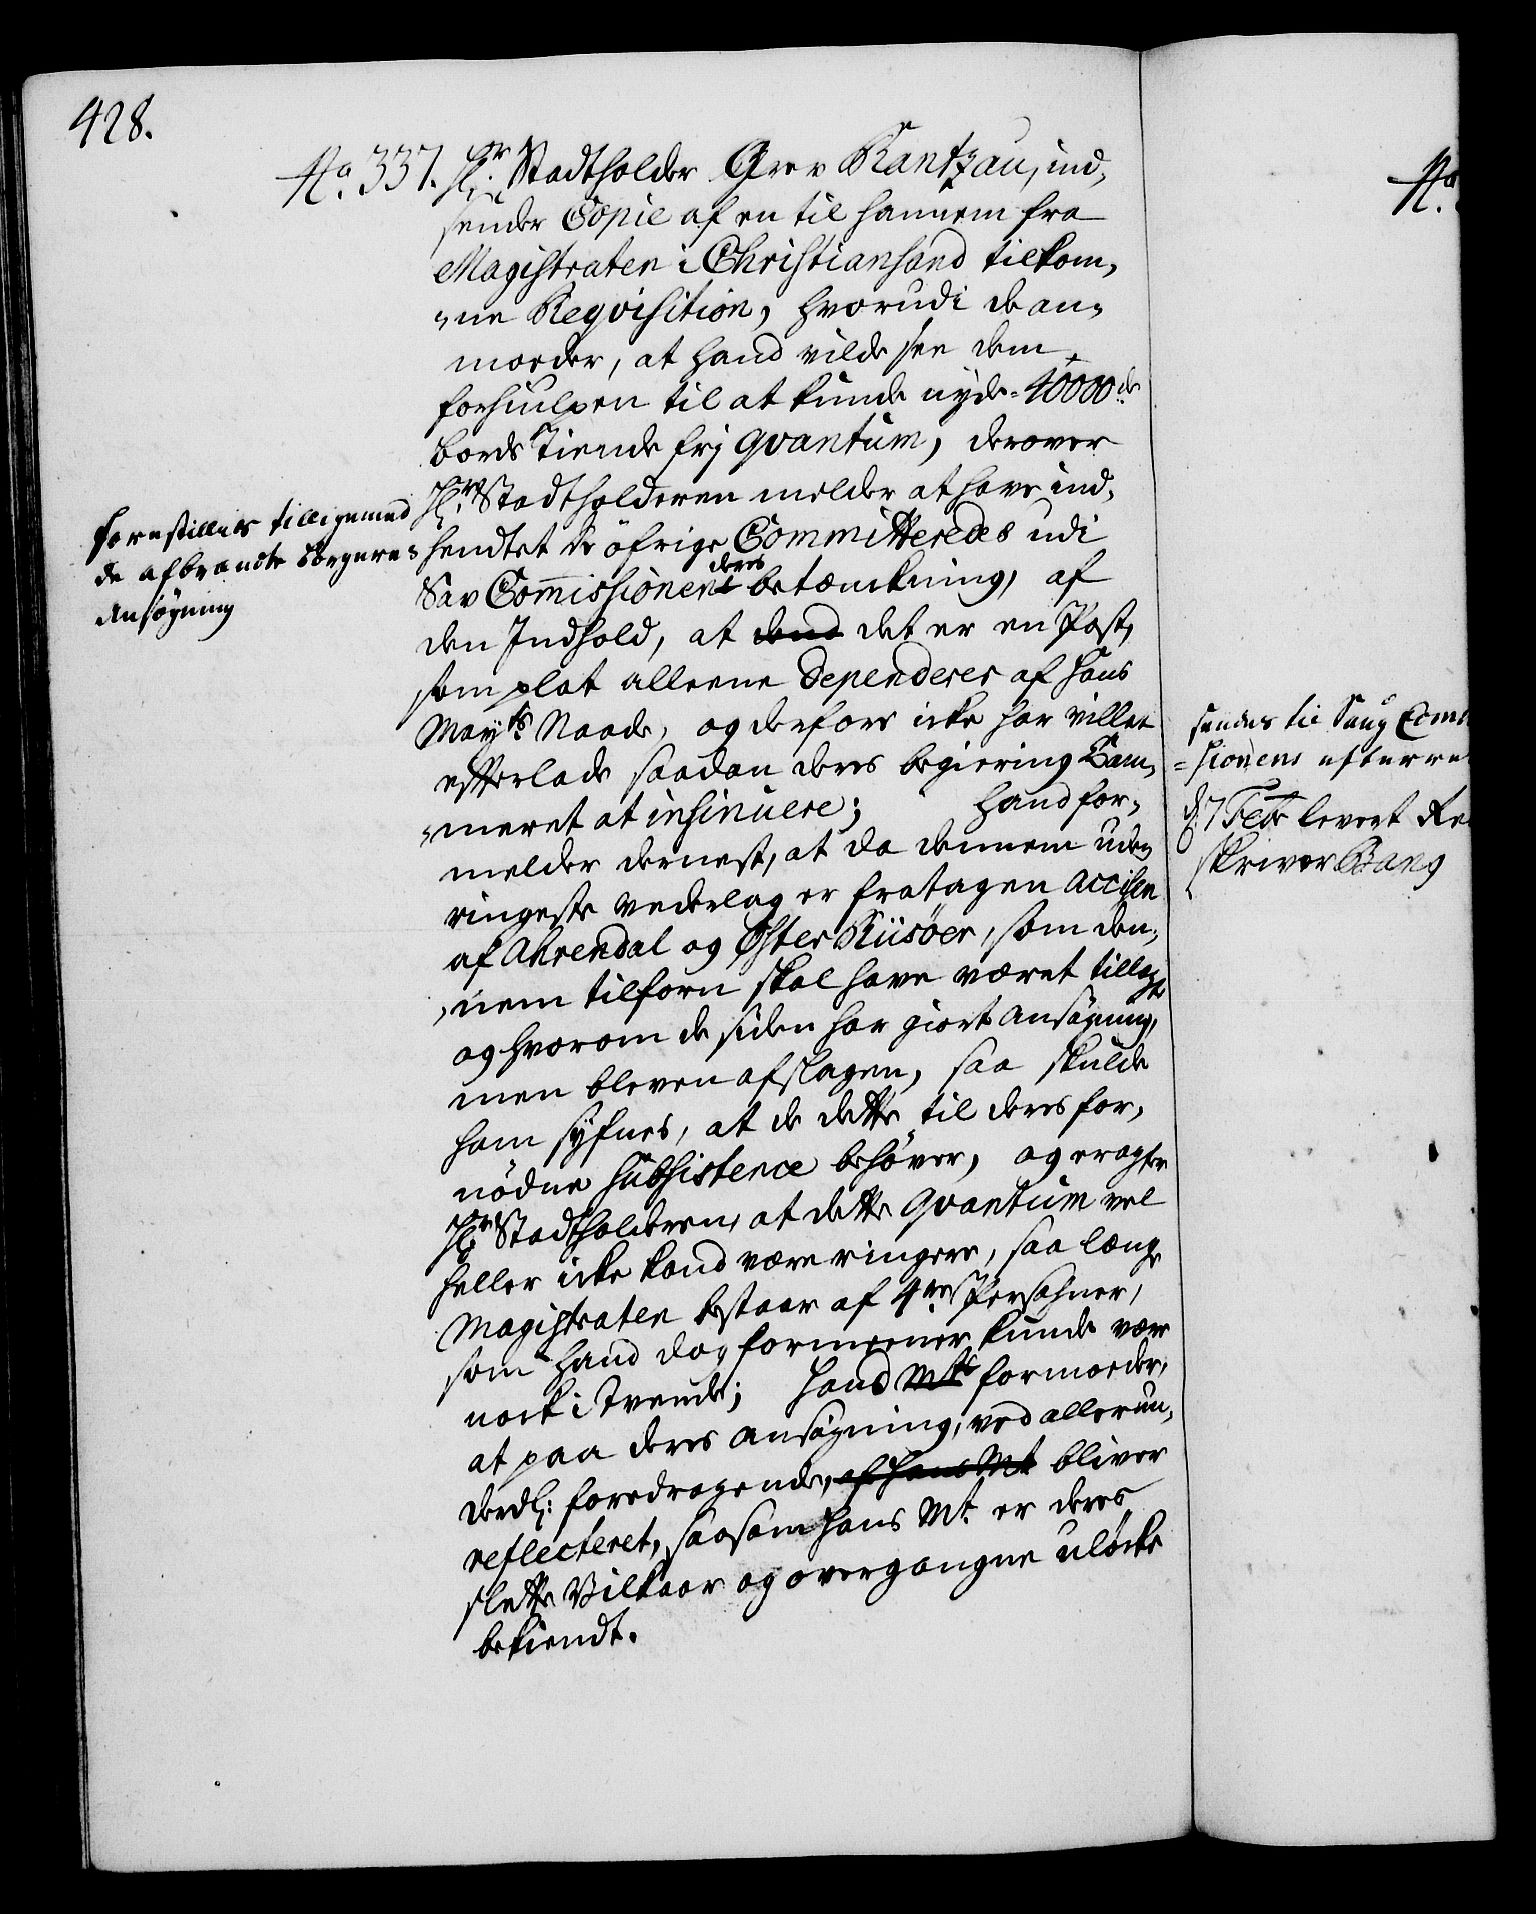 428.
No. 337. Hr. Stadtholder Grev Rantzau, ind,
sender Copie af en til hannem fra
Magistraten i Christiansand tilkom,
„ne Reqvisition, hvorudi de an„
moder, at hand vilde see dem
forhiulpen til at kunde nyde 40000de
bords Tiende frj qvantum, derover
Hr. Stadtholderen melder at have ind,
hendtet de öfrige Committeredes udi
Sav Commissionen deres betænckning, af
den Indhold, at dend det er en Post,
som plat alleene dependerer af Hans
Mayts Naade, og derfore icke har villet
efterlade saadan deres begiering Cam,
„meret at insinuere; Hand for„
melder dernest, at da dennem uden
ringeste vederlag er fratagen Accisen
af Ahrendal og Øster Riisöer, som den„
„nem tilforn skal have været tillagt
og hvorom de siden har giort Ansøgning,
men bleven afslagen, saa skulde
ham syfnes, at de dette til deres for„
nödne subsistence behöver, og eragter
Hr. Stadtholderen, at dette qvantum vel
heller icke kand være ringere, saa længe
Magistraten bestaar af 4re Persohner,
som Hand dog formeener kunde være
nock i Trende; Hand Mts formoder,
at paa deres ansögning, ved allerun„
derd: foredragende, af Hans Mt bliver
reflecteret, saasom Hans Mt. er deres
slette Vilkaar og overgangne ulöcke
bekiendt.
forestilles tilligemed
de afbrandte Borgeres
Ansøgning
No.
sendes til Saug Comis
„sionens efterre
d. 7 Febr levert Re
skriver Bang